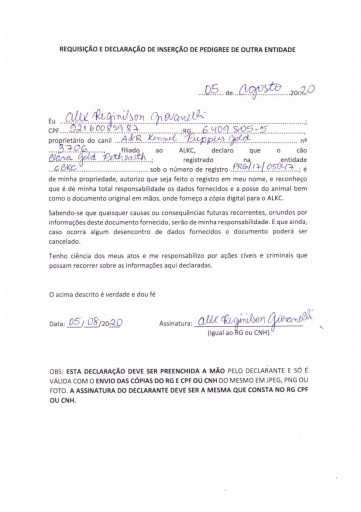 REQUISIÇÃO E DECLARAÇÃO DE INSERÇÃO DE PEDIGREE DE OUTRA ENTIDADE
05 de Agosto 2020
Eu Alex Reginilson Giovanelli
CPF 92160085987 ;RG 6409805-5 ,
proprietário do canil A&R Kennel Puppies Gold nº
3706 filiado ao ALKC, declaro que o cão
Gold registrado na entidade
CBKC sob o número de registro PRG/17/05047 ; é
de minha propriedade, autorizo que seja feito o registro em meu nome, e reconheço
que é de minha total responsabilidade os dados fornecidos e a posse do animal bem
como o documento original em mãos, onde forneço a cópia digital para o ALKC.
Sabendo-se que quaisquer causas ou consequências futuras recorrentes, oriundos por
informações deste documento fornecido, serão de minha responsabilidade. E que ainda,
caso ocorra algum desencontro de dados fornecidos o documento poderá ser
cancelado.
Tenho ciência dos meus atos e me responsabilizo por ações cíveis e criminais que
possam recorrer sobre as informações aqui declaradas.
O acima descrito é verdade e dou fé
Data: 05/08/2020 Assinatura: Alex Reginilson Giovanelli
(Igual ao RG ou CNH)
OBS: ESTA DECLARAÇÃO DEVE SER PREENCHIDA A MÃO PELO DECLARANTE E SÓ É
VÁLIDA COM O ENVIO DAS CÓPIAS DO RG E CPF OU CNH DO MESMO EM JPEG, PNG OU
FOTO. A ASSINATURA DO DECLARANTE DEVE SER A MESMA QUE CONSTA NO RG CPF
OU CNH.